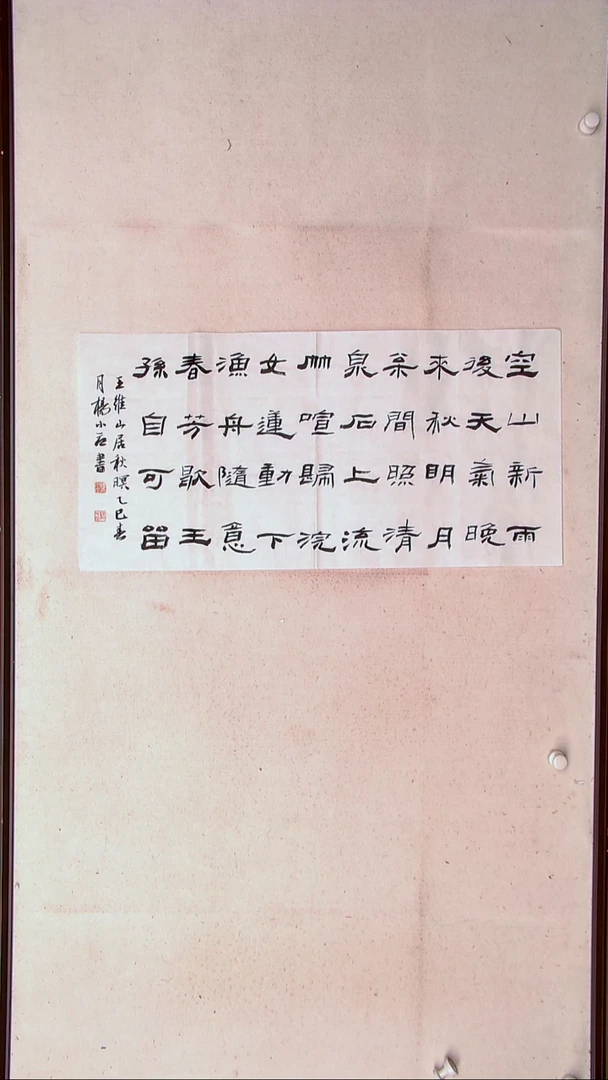 空山新雨
後天氣晚
來秋明月
枀間照清
泉石上流
竹喧歸浣
女蓮動下
漁舟隨意
春芳歇王
孫自可留
王維山居秋暝乙巳春
月楊小書